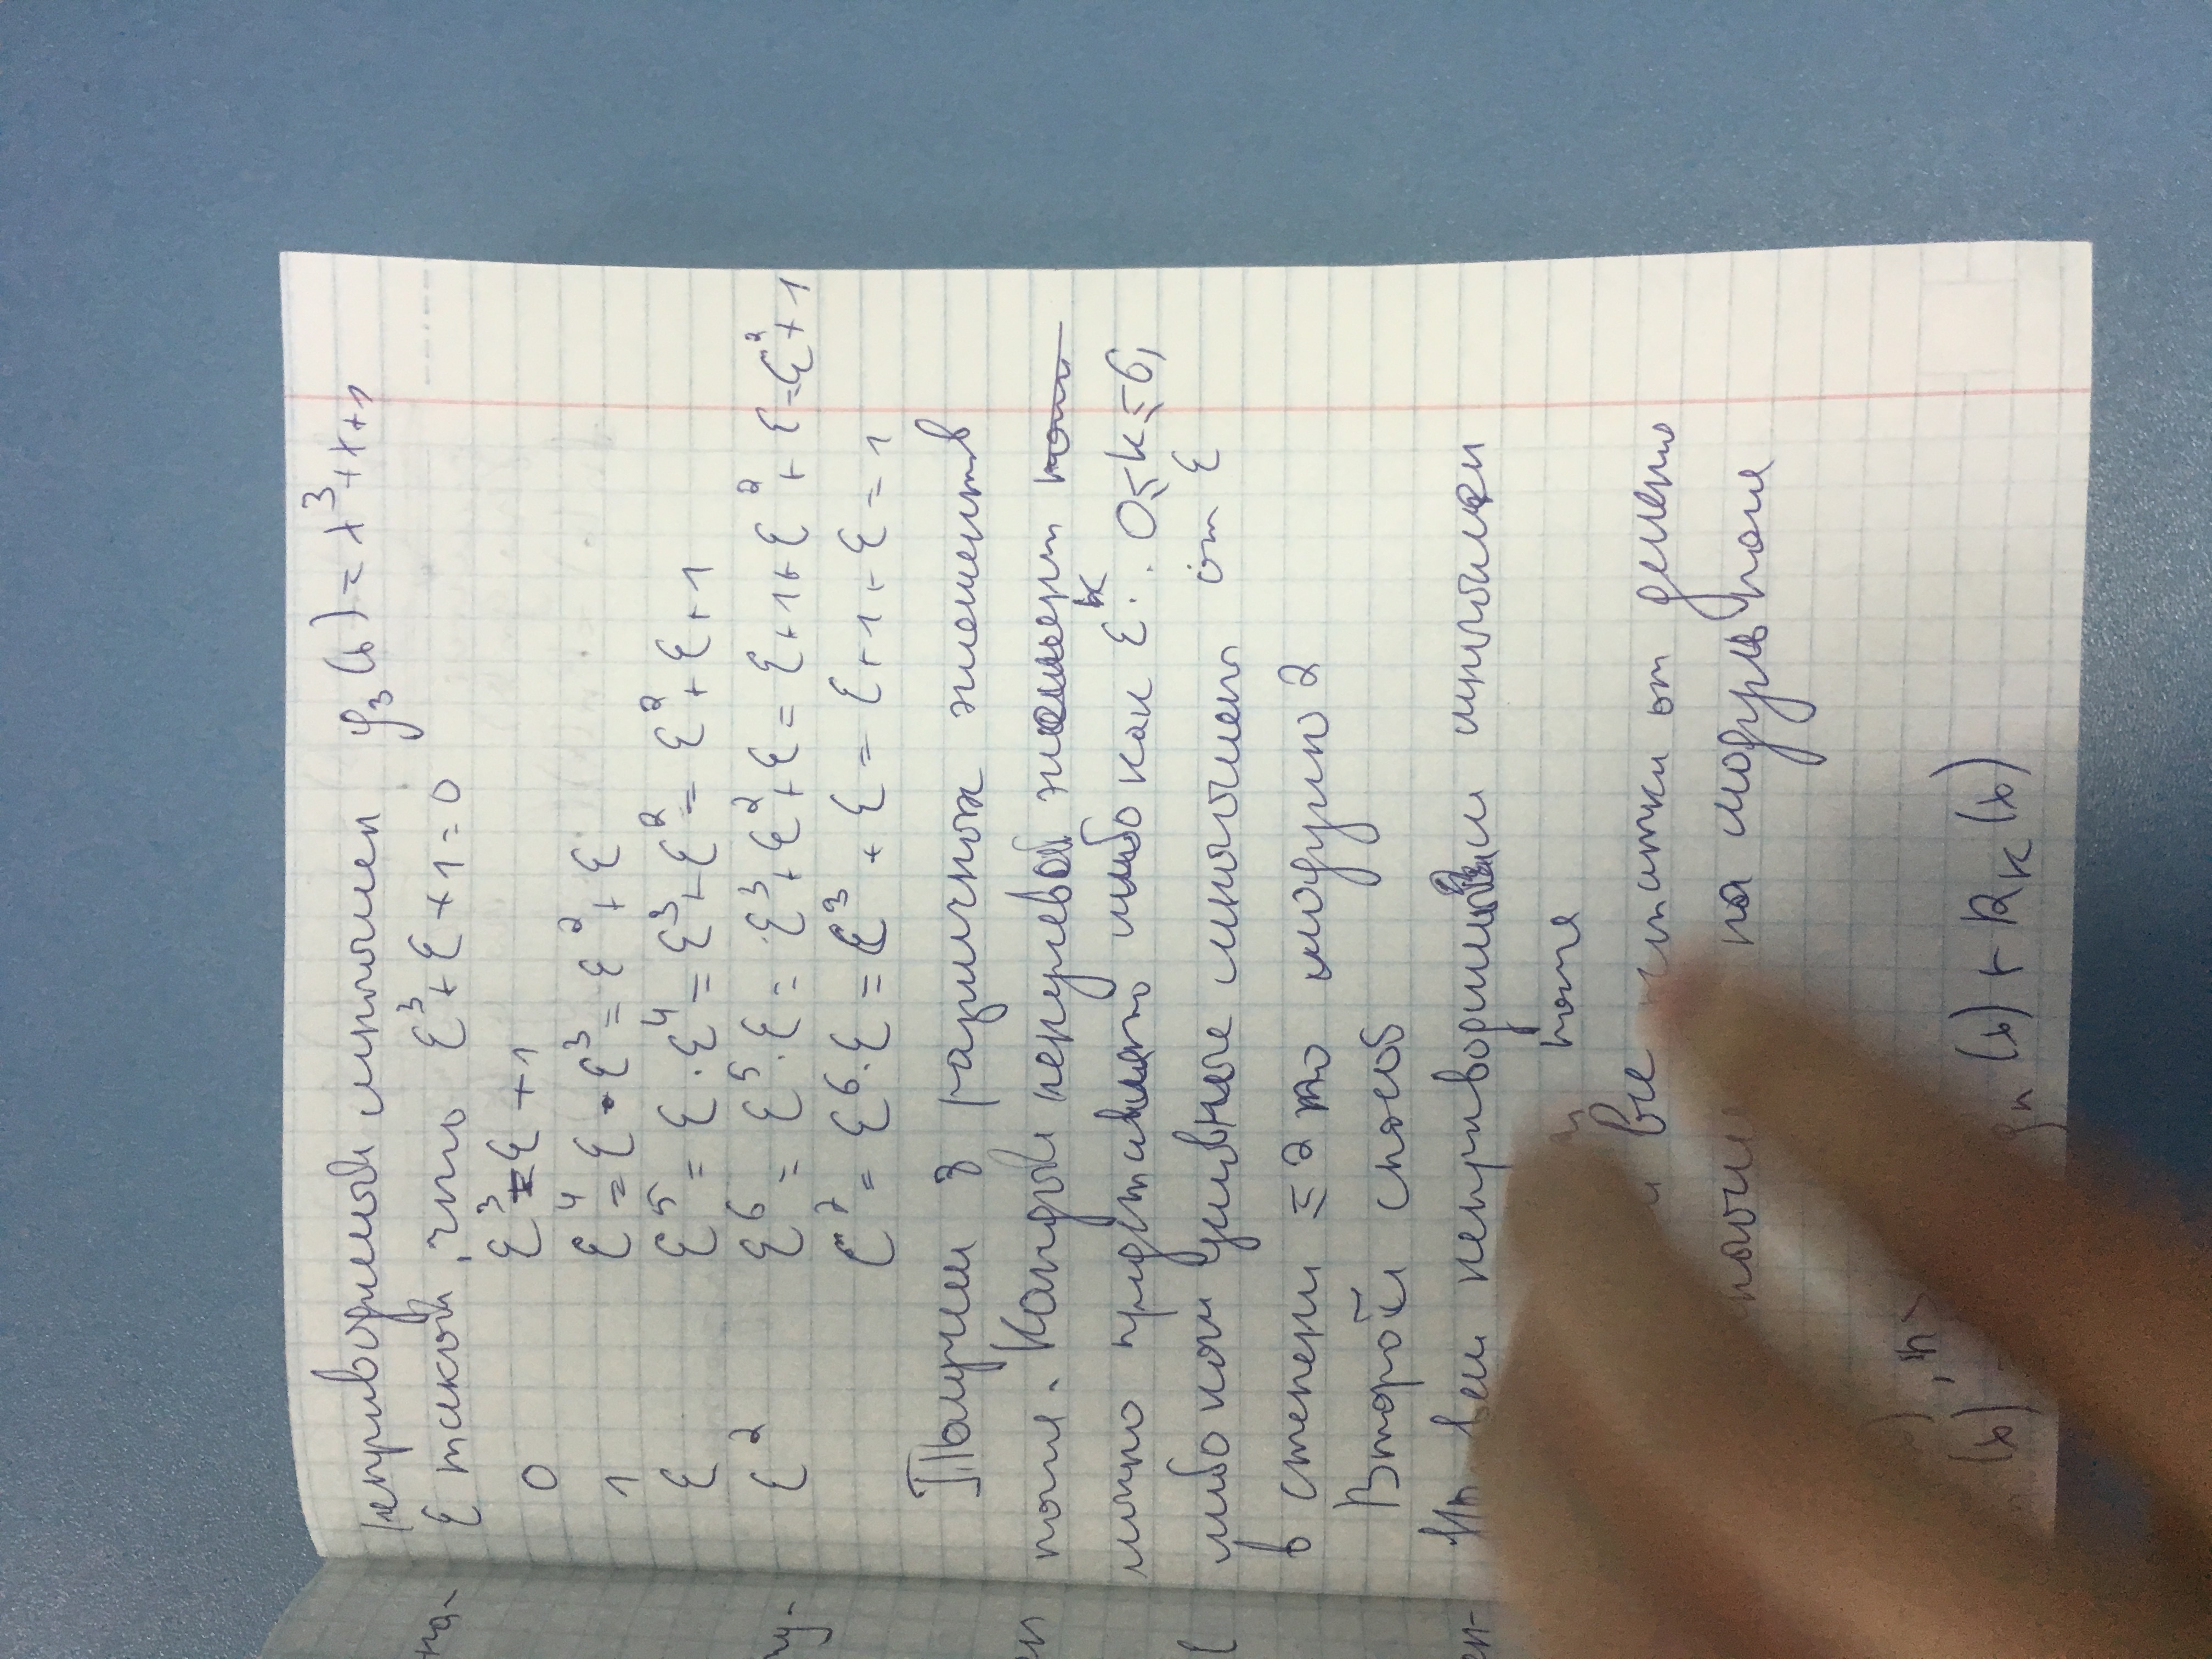 неприводимый многочлен φ₃(x) = x³+x+1
ε такой, что ε³+ε+1=0
0 ε³=ε+1
1 ε⁴=ε·ε³=ε²+ε
ε ε⁵=ε·ε⁴=ε³+ε²=ε²+ε+1
ε² ε⁶=ε⁵·ε=ε³+ε²+ε=ε+1+ε²+ε=ε²+1
ε⁷=ε⁶·ε=ε³+ε=ε+1+ε=1
Получили 8 различных элементов
поля. Каждый ненулевой элемент
можно представить либо как εᵏ. 0≤k≤6,
либо как многочлен от ε
в степени ≤2 по модулю 2
Второй способ
неприводимый многочлен
поле
все остатки от деления
на модуль поля
, n>
(x) = (x)+R_K(x)